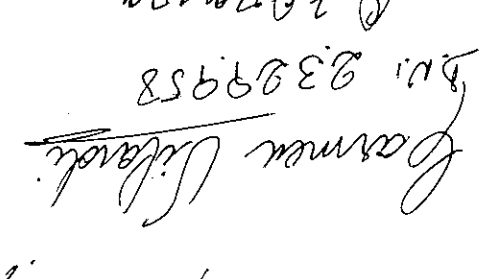 Carmen Vilardi
D.N. 2.329.958